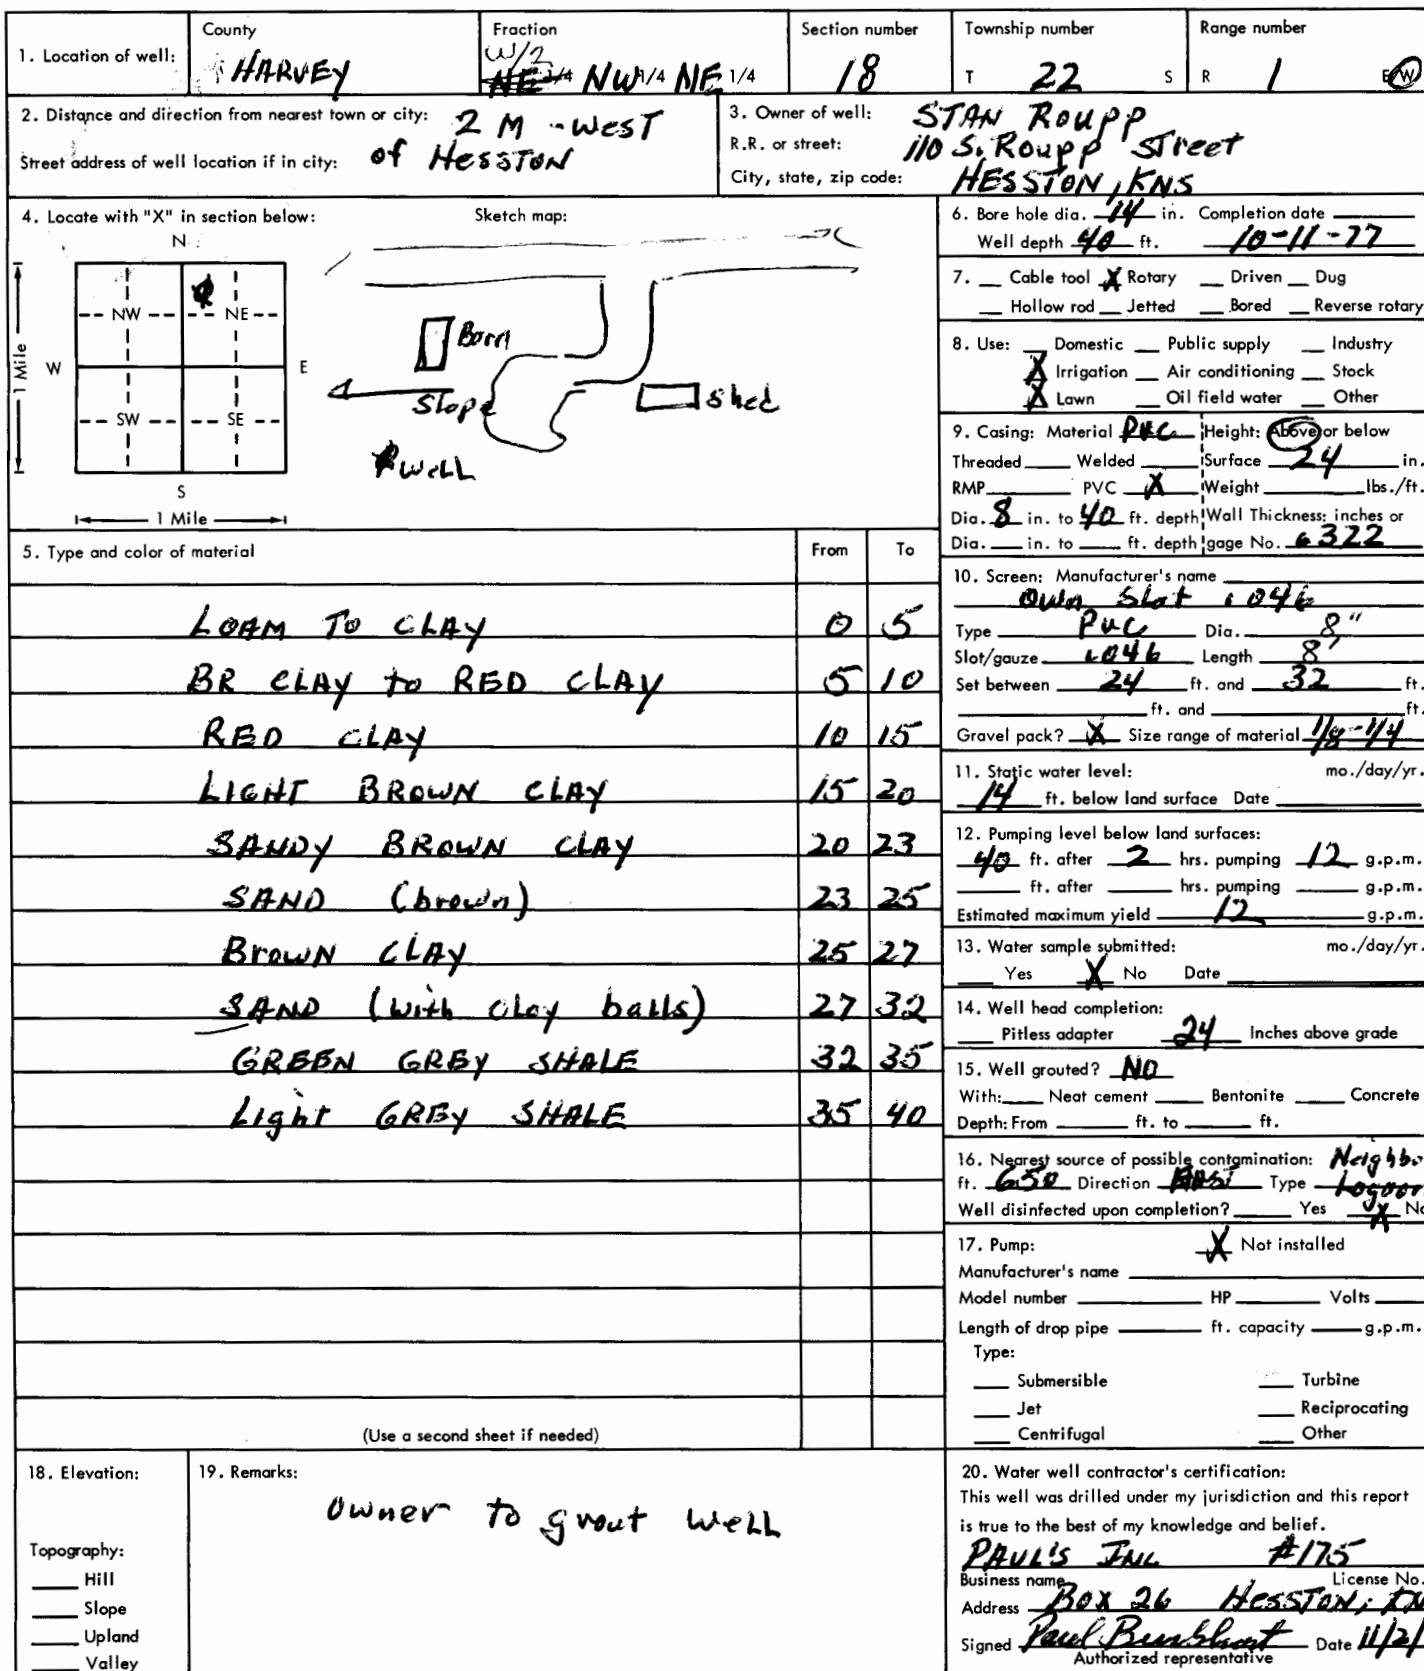 County Fraction Section number Township number Range number
1. Location of well: HARVEY W/2 NE 1/4 NW 1/4 NE 1/4 18 T 22 S R 1 E/W
2. Distance and direction from nearest town or city: 2 M - West
Street address of well location if in city: of HESSTON
3. Owner of well: STAN ROUPP
R.R. or street: 110 S. Roupp Street
City, state, zip code: HESSTON, KNS
4. Locate with "X" in section below: Sketch map:
N
NW NE
W E
1 Mile
SW SE
S
1 Mile
Barn
Slope
Shed
Well
5. Type and color of material From To
LOAM TO CLAY 0 5
BR CLAY to RED CLAY 5 10
RED CLAY 10 15
LIGHT BROWN CLAY 15 20
SANDY BROWN CLAY 20 23
SAND (brown) 23 25
Brown CLAY 25 27
SAND (with clay balls) 27 32
GREEN GREY SHALE 32 35
Light GREY SHALE 35 40
(Use a second sheet if needed)
6. Bore hole dia. 14 in. Completion date
Well depth 40 ft. 10-11-77
7. Cable tool X Rotary Driven Dug
Hollow rod Jetted Bored Reverse rotary
8. Use: Domestic Public supply Industry
X Irrigation Air conditioning Stock
X Lawn Oil field water Other
9. Casing: Material PVC Height: Above or below
Threaded Welded Surface 24 in.
RMP PVC X Weight lbs./ft.
Dia. 8 in. to 40 ft. depth Wall Thickness: inches or
Dia. in. to ft. depth gage No. .322
10. Screen: Manufacturer's name
Own Slot .046
Type PVC Dia. 8"
Slot/gauze .046 Length 8'
Set between 24 ft. and 32 ft.
ft. and ft.
Gravel pack? X Size range of material 1/8-1/4
11. Static water level: mo./day/yr.
14 ft. below land surface Date
12. Pumping level below land surfaces:
40 ft. after 2 hrs. pumping 12 g.p.m.
ft. after hrs. pumping g.p.m.
Estimated maximum yield 12 g.p.m.
13. Water sample submitted: mo./day/yr.
Yes X No Date
14. Well head completion:
Pitless adapter 24 Inches above grade
15. Well grouted? NO
With: Neat cement Bentonite Concrete
Depth: From ft. to ft.
16. Nearest source of possible contamination: Neighbo
ft. 650 Direction EAST Type Lagoon
Well disinfected upon completion? Yes X No
17. Pump: X Not installed
Manufacturer's name
Model number HP Volts
Length of drop pipe ft. capacity g.p.m.
Type:
Submersible Turbine
Jet Reciprocating
Centrifugal Other
18. Elevation:
Topography:
Hill
Slope
Upland
Valley
19. Remarks:
Owner to grout Well
20. Water well contractor's certification:
This well was drilled under my jurisdiction and this report
is true to the best of my knowledge and belief.
PAUL'S INC #175
Business name License No.
Address Box 26 HESSTON, KN
Signed Paul Date 11/2/
Authorized representative